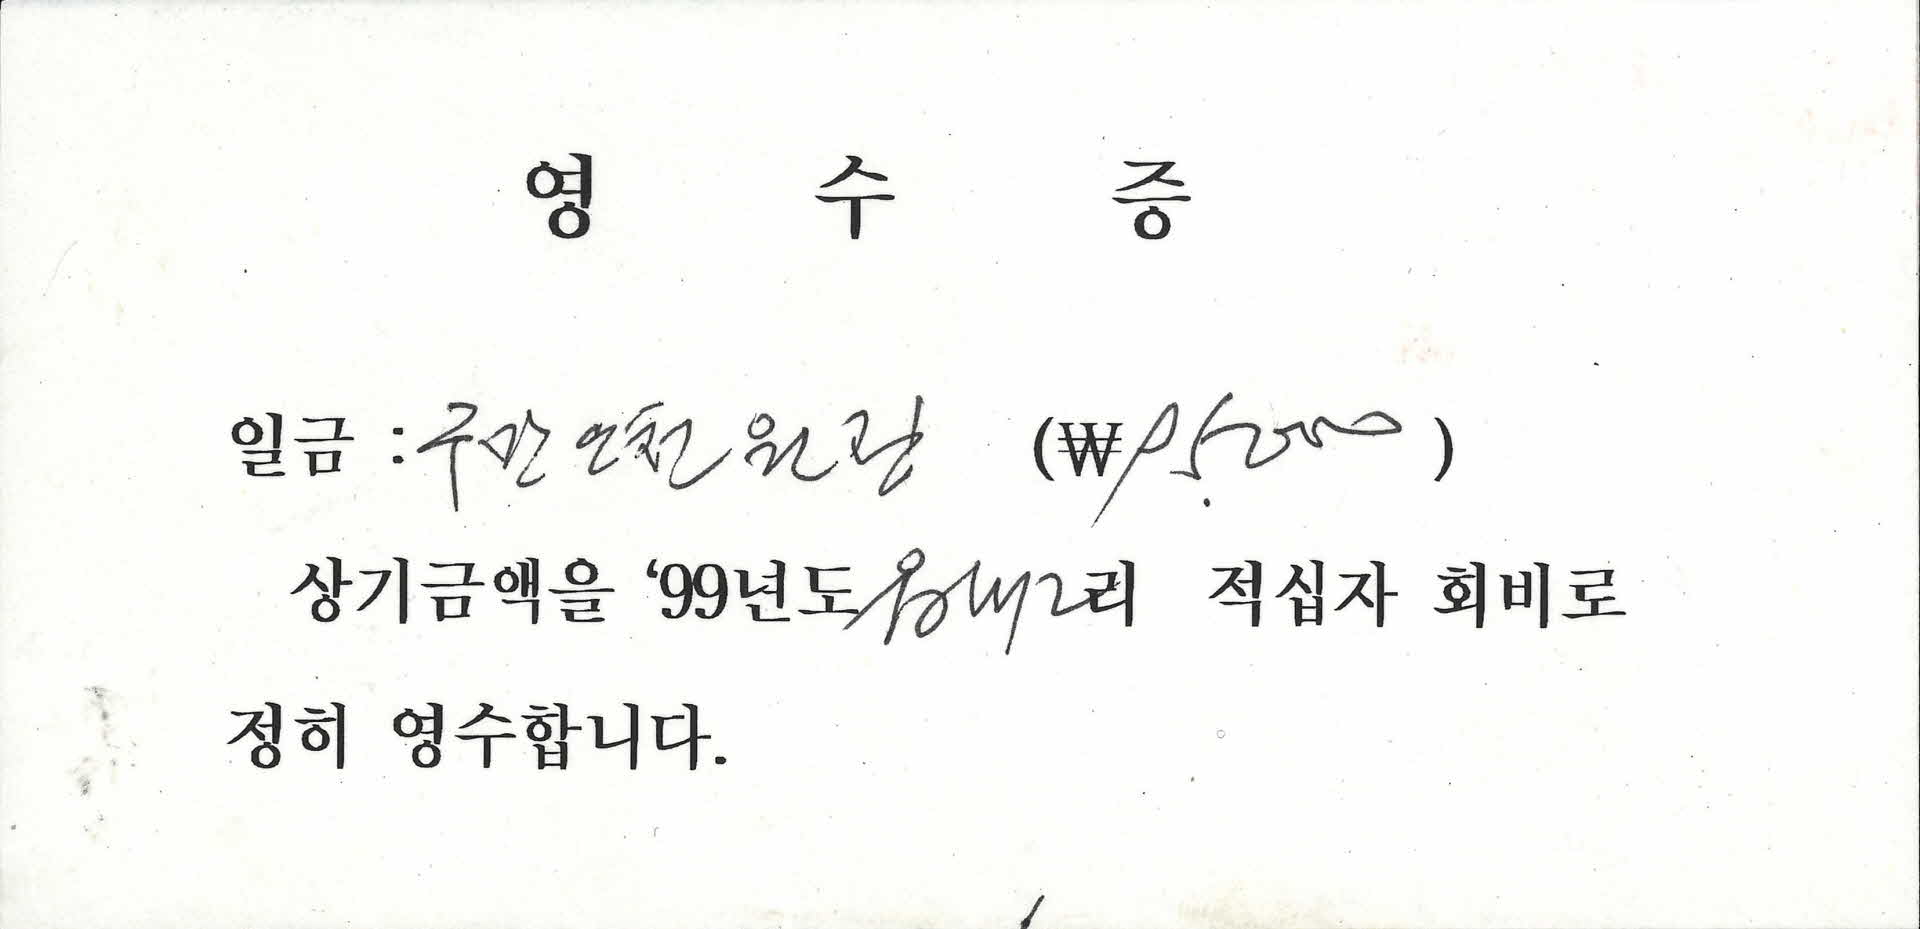 영 수 증
일금 : 구만오천원정 (₩95,000)
상기금액을 '99년도 용내2리 적십자 회비로
정히 영수합니다.